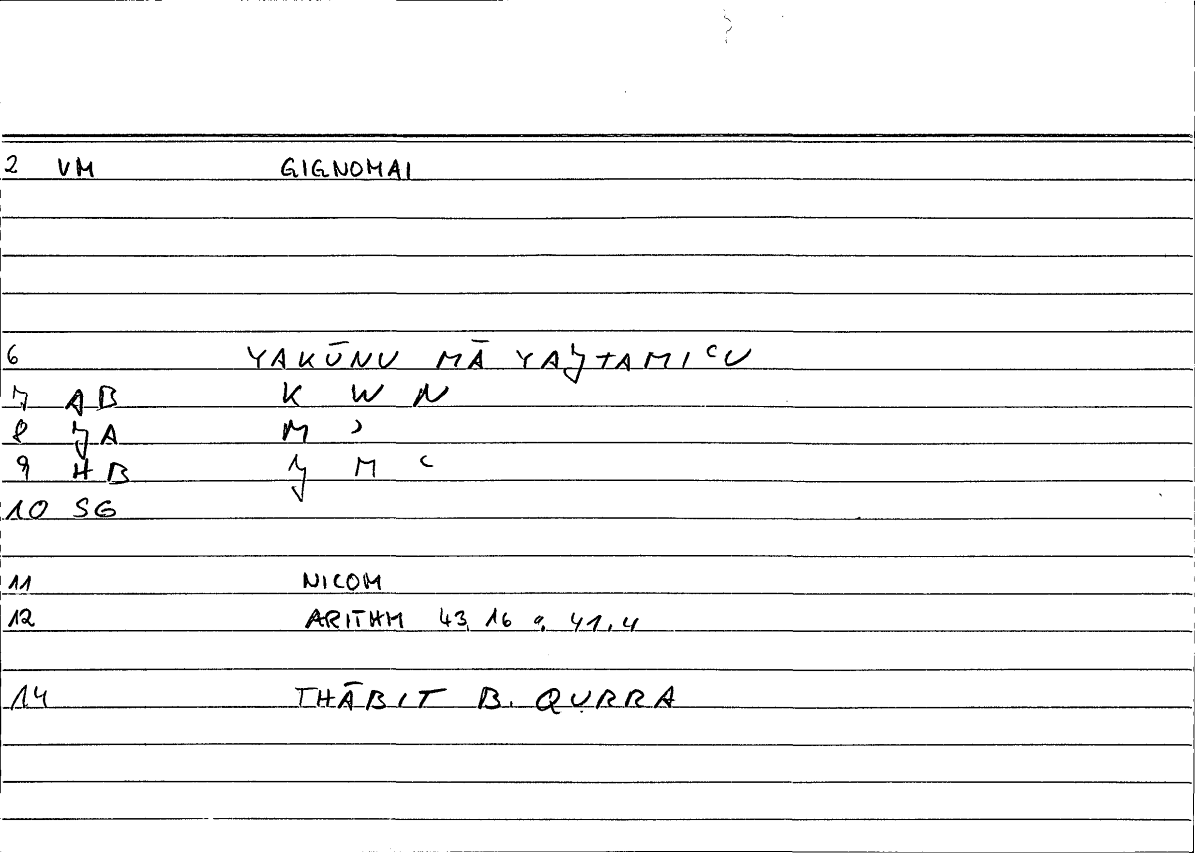 2 VM GIGNOMAI
6 YAKŪNU MĀ YAJTAMIʿU
7 AB K W N
8 JA M ʾ
9 HB J M ʿ
10 SG
11 NICOM
12 ARITHM 43, 16 ; 41, 4
14 THĀBIT B. QURRA